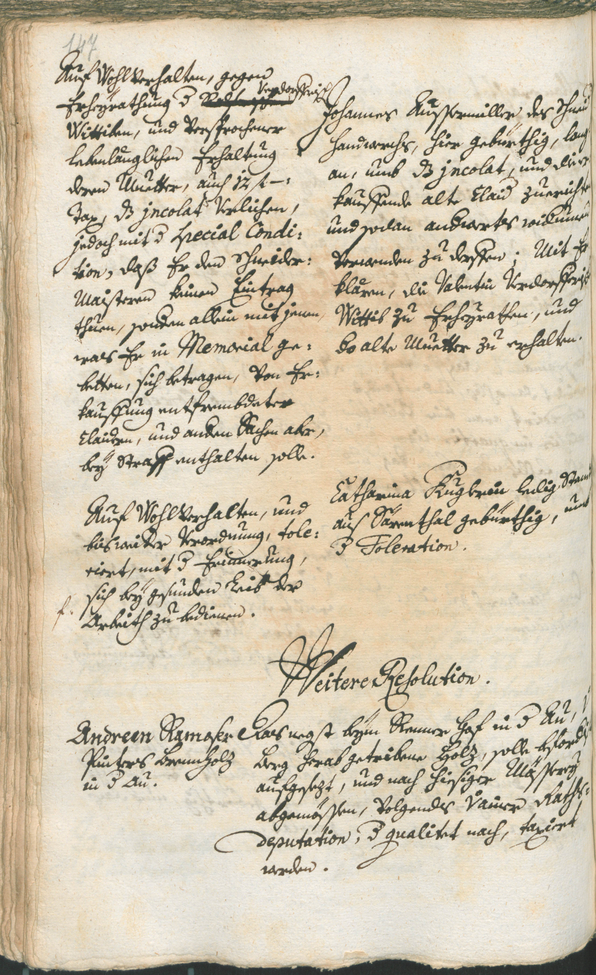 147
Auf Wohlverhalten, gegen
Eheyrathung d Verdorfferisch
Wittiben, und Versprochener
lebenlänglichen Erhaltung
deren Muetter, auch 12 f –
Tax, ds jncolat Verlichen,
jedoch mit d special Condi:
tion, daß Er den Schneider:
Maisteren keinen Eintrag
thuen, sonder allein mit jenen
was Er in Memorial ge:
betten, sich betragen, von Er:
kauffung entfrembdeter
Claider, und andern Sachen aber,
bey Straff enthalten solle.
Johannes Aussermiller des Schneid
handwerchs, hier gebürthig, lang
an, umb ds jncolat, und die er
kauffende alte Claid zuericht
und sodan andwerts
verwenden zu derffen; Mit Er
klären, die Valentin Verdorfferisch
Wittib zu Eheyrathen, und
so alte Muetter zu erhalten.
Auf Wohlverhalten, und
bis weitere Verordnung, tole:
riert, mit d Erinnerung,
sich bey gesunden Leib der
Arbeith zu bedienen.
f.
Catharina ledig Stand
aus Sarenthal gebürthig, umb
d Toleration.
Weitere Resolution.
Andreen Ramoser
Pinters Brennholz
in d Au.
Das negst beym Renner Hof in d Au,
Berg herabgetribene Holz, solle
aufgesezt, und nach hiesiger Mässerey
abgemössen, volgends Raths:
deputation, d qualitet nach, taxiert
werden.